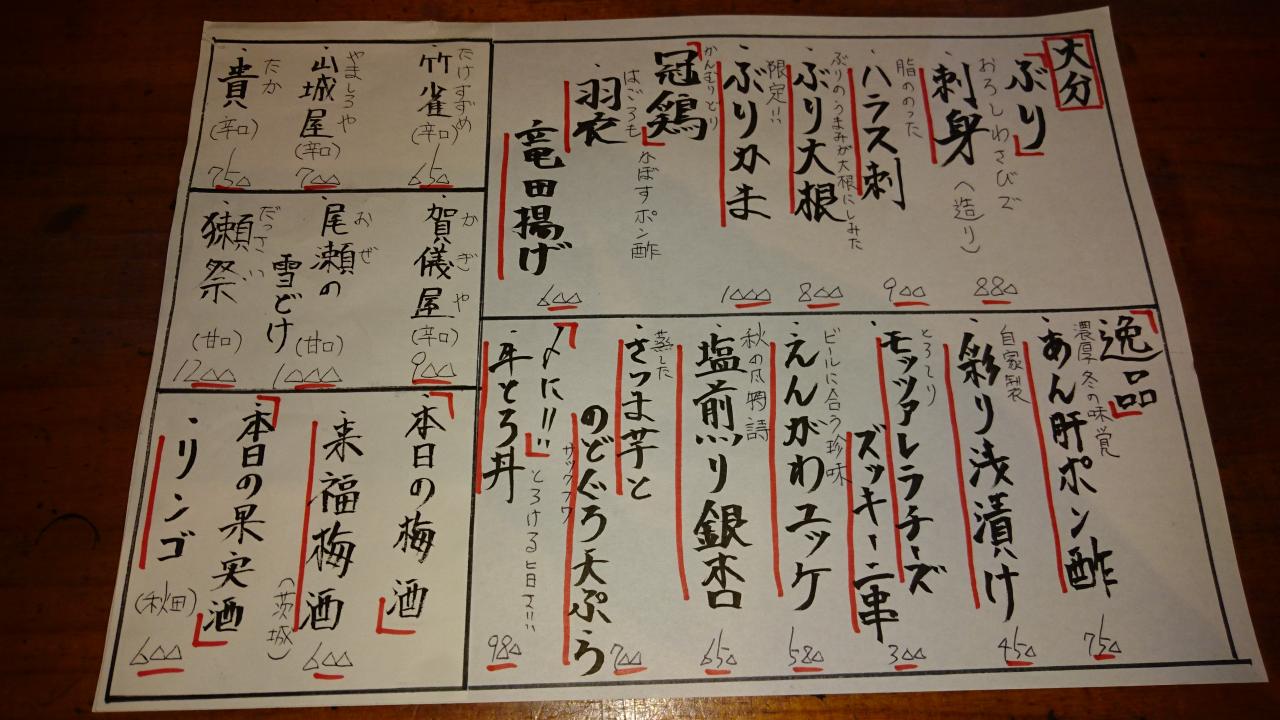 大分
「ぶり」
おろしわさびで
・刺身(造り)
880
脂ののった
・ハラス刺
900
ぶりのうまみが大根にしみた
・ぶり大根
800
限定!!
・ぶりかま
1000
かんむりどり
「冠鶏」かぼすポン酢
はごろも
・羽衣
竜田揚げ
600
「逸品」
濃厚冬の味覚
・あん肝ポン酢
750
自家製
・彩り浅漬け
450
とろ〜り
・モッツァレラチーズ
ズッキーニ串
300
ビールに合う珍味
・えんがわユッケ
580
秋の風物詩
・塩煎り銀杏
650
蒸した
・さつま芋と
のどぐろ天ぷら
700
サックフワ
「〆に!!」とろける旨さ!!
・牛とろ丼
980
たけすずめ
・竹雀(辛口)
650
やましろや
・山城屋(辛口)
700
たか
・貴(辛口)
750
かぎや
・賀儀屋(辛口)
900
おぜ
・尾瀬の
雪どけ(甘口)
1000
だっさい
・獺祭(甘口)
1200
「本日の梅酒」
・来福梅酒(茨城)
600
「本日の果実酒」
・リンゴ(秋田)
600